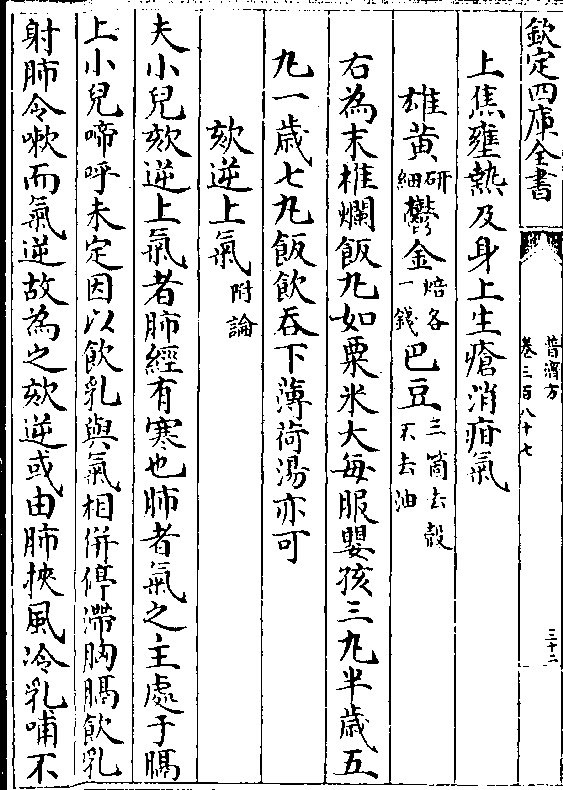 欽定四庫全書
普濟方
卷三百八十七
三十二
上焦壅熱及身上生瘡消疳氣
雄黄研細鬱金焙各一錢巴豆三箇去殻不去油
右為末椎爛飯九如粟米大每服嬰孩三九半歲五
九一歲七九飯飲吞下薄荷湯亦可
欬逆上氣附論
夫小兒欬逆上氣者肺經有寒也肺者氣之主處于膈
上小兒啼呼未定因以飲乳與氣相併停滯胸膈飲乳
射肺令嗽而氣逆故為之欬逆或由肺挾風冷乳哺不